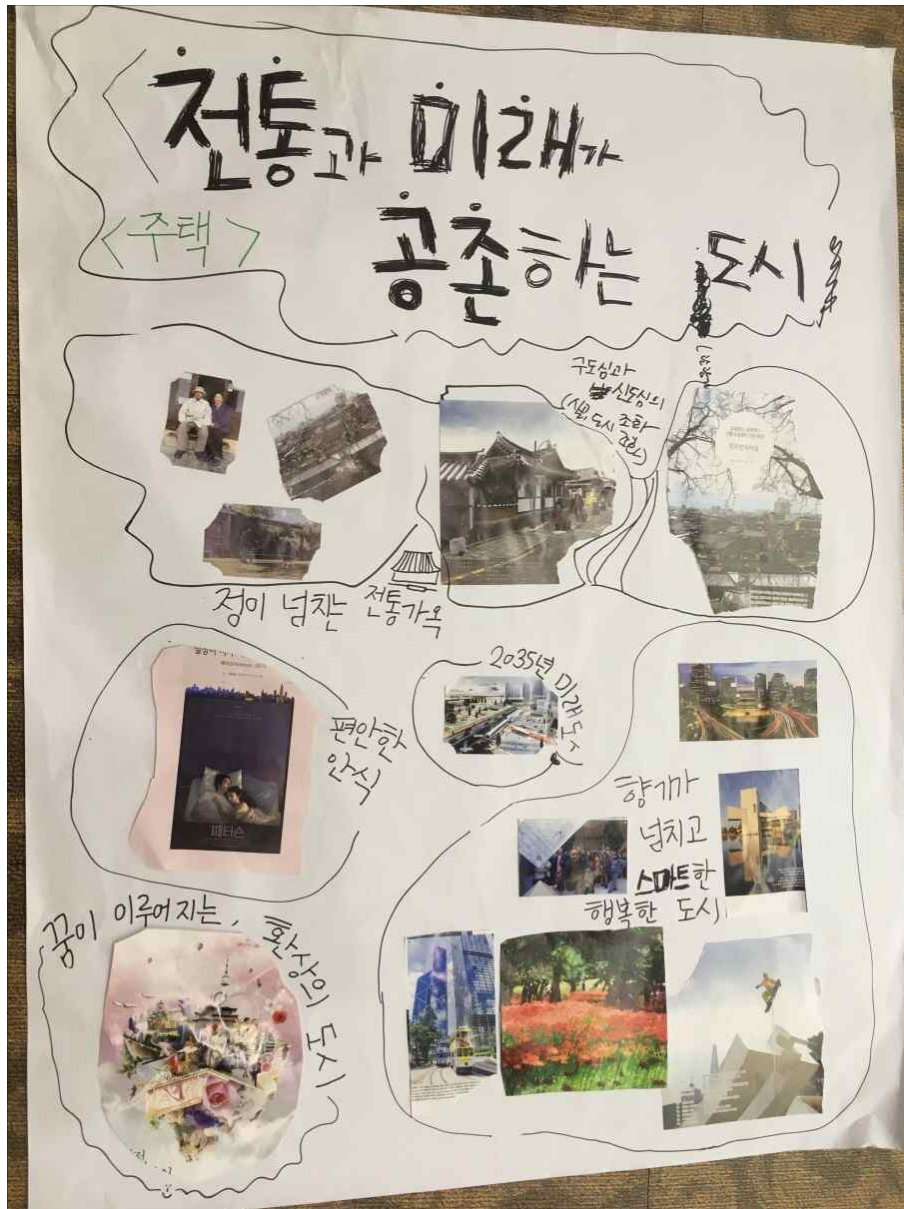 <전통과 미래가
공존하는 도시
<주택>
구도심과
신도심의
조화
(시골, 도시
정이 넘치는 전통가옥
2035년 미래도시
편안한
안식
패터슨
향기가
넘치고
스마트한
행복한 도시
꿈이 이루어지는,
환상의 도시